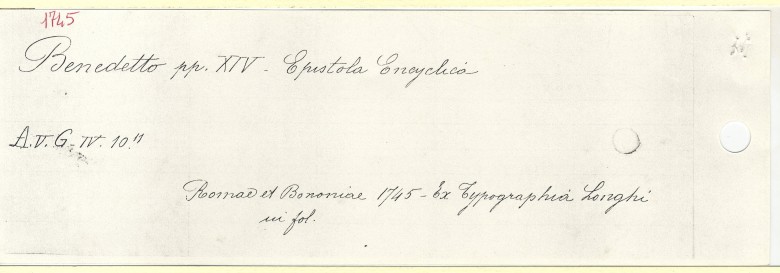 1745
Benedetto pp. XIV - Epistola Encyclica
A.V.G. IV. 10.11
Romae et Bononiae 1745 - Ex Typographia Longhi
in fol.